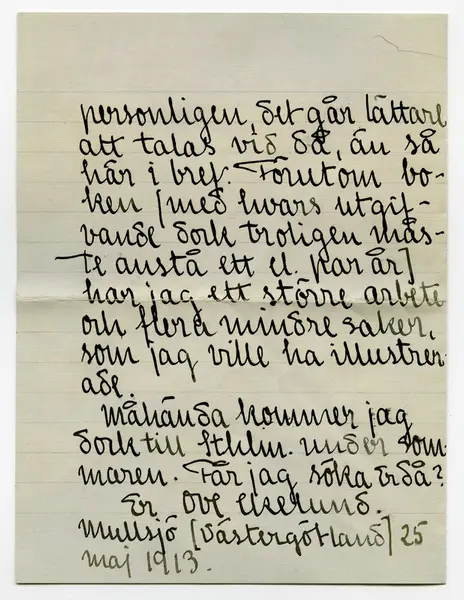 personligen, det går lättare
att talas vid då, än så
här i bref. Förutom bo-
ken [med hvars utgif-
vande dock troligen mås-
te anstå ett el. par år]
har jag ett större arbete
och flera mindre saker,
som jag ville ha illustrer-
ade.
Måhända kommer jag
dock till Sthlm. under som-
maren. Får jag söka Er då?
Er Ove Ekelund.
Mullsjö [Västergötland] 25
maj 1913.